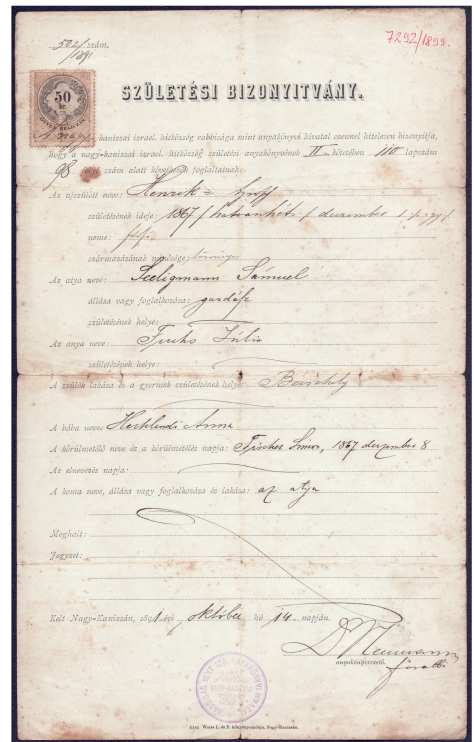 502/ szám.
1891
7292/1899.
50
kr.
SZÜLETÉSI BIZONYITVÁNY.
A nagy-kanizsai izrael. hitközség rabbisága mint anyakönyvi hivatal ezennel hitelesen bizonyitja,
hogy a nagy-kanizsai izrael. hitközség születési anyakönyvének II. kötetében 110 lapszám
98 folyó szám alatt következők foglaltatnak:
Az ujszülött neve: Henrek
születésének ideje: 1867 / hatvanhét / deczember 1. / egy /.
neme: fi
származásának minősége: törvényes
Az atya neve: Seeligmann Sámuel
állása vagy foglalkozása: gazdász
születésének helye:
Az anya neve: Fuchs Júlia
születésének helye:
A szülők lakása és a gyermek születésének helye:
A bába neve: Anna
A körülmetélő neve és a körülmetélés napja: Fischer Simon, 1867 deczember 8
Az elnevezés napja:
A koma neve, állása vagy foglalkozása és lakása: az atya
Meghalt:
Jegyzet:
Kelt Nagy-Kanizsán, 1891. évi október hó 14. napján.
Dr Neumann
anyakönyvvezető.
főrabbi